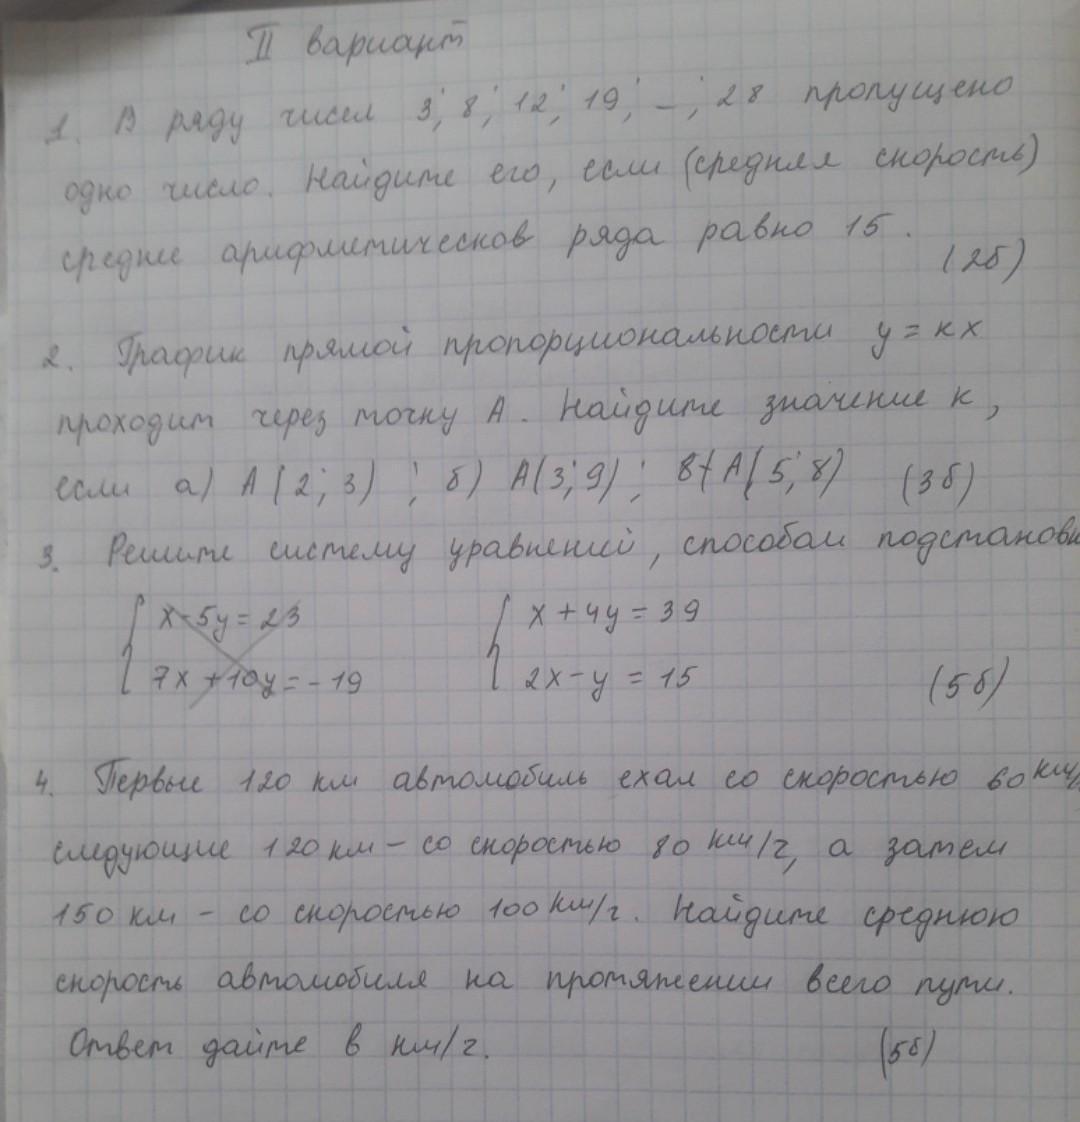 II вариант
1. В ряду чисел 3; 8; 12; 19; _; 28 пропущено
одно число. Найдите его, если (средняя скорость)
средние арифметическов ряда равно 15.
(2б)
2. График прямой пропорциональности y = кх
проходит через точку А. Найдите значение к,
если а) А(2; 3) ; б) А(3; 9); в) А(5; 8) (3б)
3. Решите систему уравнений, способом подстановк
x - 5y = 23
7x + 10y = - 19
x + 4y = 39
2x - y = 15
(5б)
4. Первые 120 км автомобиль ехал со скоростью 60 км/
следующие 120 км - со скоростью 80 км/ч, а затем
150 км - со скоростью 100 км/ч. Найдите среднюю
скорость автомобиля на протяжении всего пути.
Ответ дайте в км/ч.
(5б)